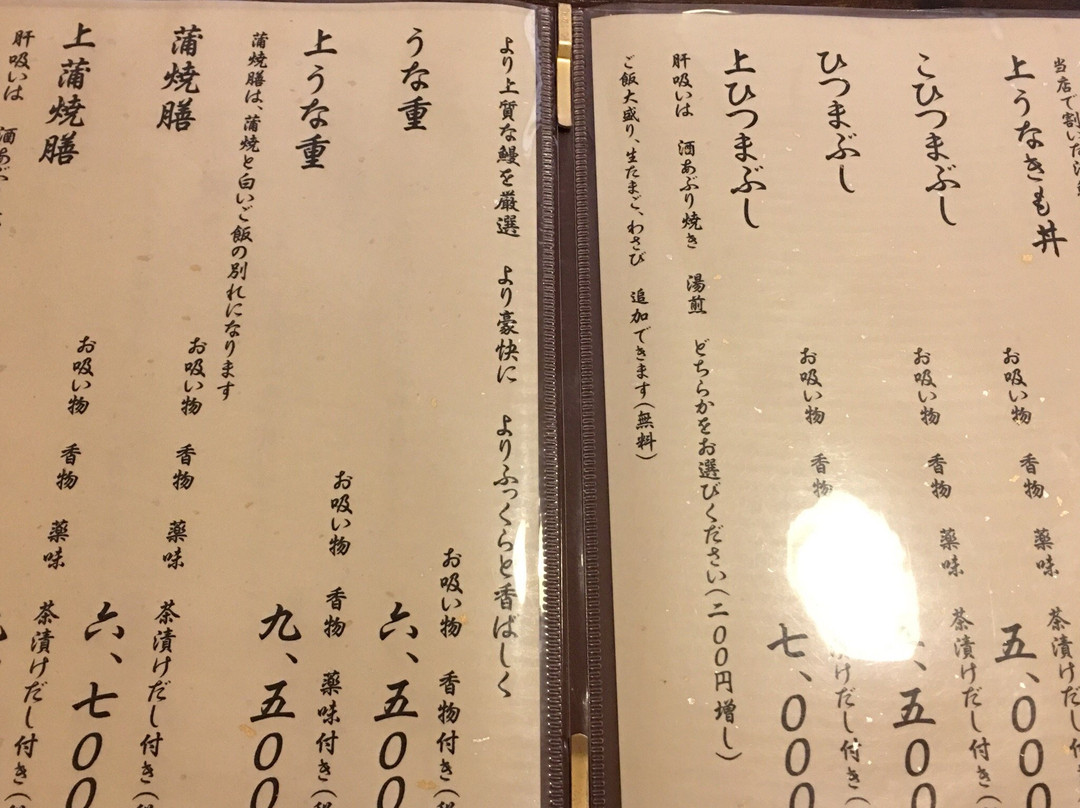 当店で割いた
上うなきも丼
お吸い物 香物 薬味 茶漬けだし付き
こひつまぶし 五、〇〇
お吸い物 香物 薬味 茶漬けだし付き(
ひつまぶし 、五〇〇
お吸い物 香物 けだし付き(
上ひつまぶし 七、〇〇〇
肝吸いは 酒あぶり焼き 湯煎 どちらかをお選びください(二〇〇円増し)
ご飯大盛り、生たまご、わさび 追加できます(無料)
より上質な鰻を厳選 より豪快に よりふっくらと香ばしく
お吸い物 香物付き(
うな重 六、五〇〇
お吸い物 香物 薬味付き(
上うな重 九、五〇〇
蒲焼膳は、蒲焼と白いご飯の別れになります
お吸い物 香物 薬味 茶漬けだし付き(
蒲焼膳 六、七〇〇
お吸い物 香物 薬味 茶漬けだし付き(
上蒲焼膳
肝吸いは 酒あぶ